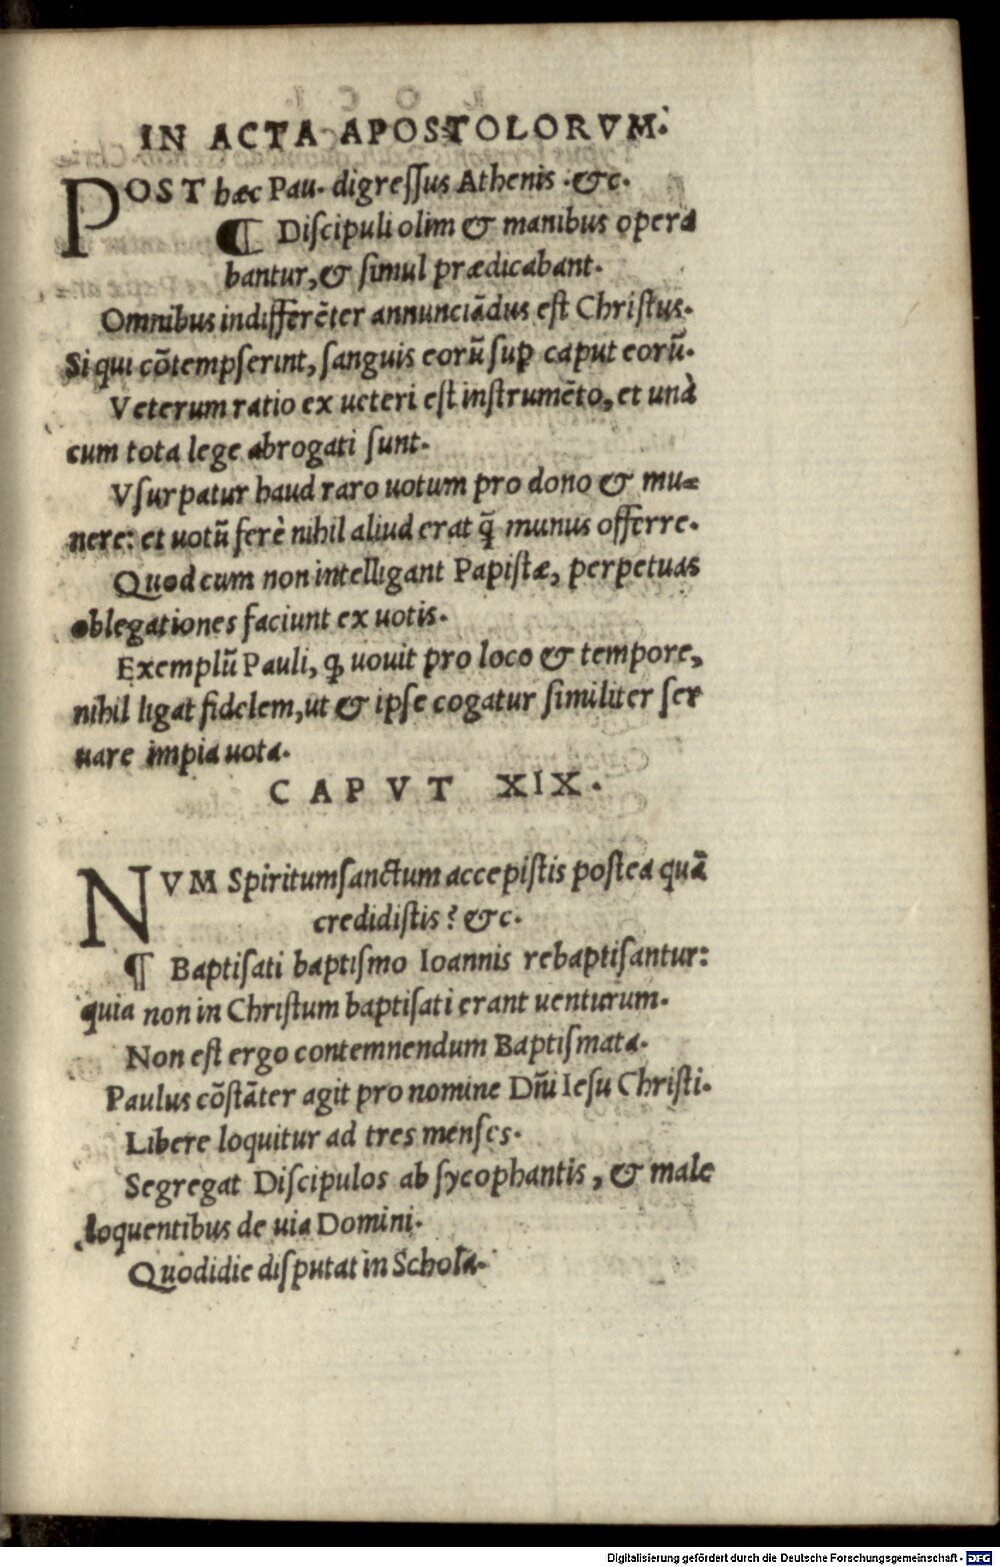 IN ACTA APOSTOLORVM.
POST hæc Pau. digreſſus Athenis .&c.
¶ Diſcipuli olim & manibus opera
bantur, & ſimul prædicabant.
Omnibus indifferẽter annunciãdus eſt Chriſtus.
Si qui cõtempſerint, ſanguis eorũ ſuꝑ caput eorũ.
Veterum ratio ex ueteri eſt inſtrumẽto, et unà
cum tota lege abrogati ſunt.
Vſurpatur haud raro uotum pro dono & mu=
nere: et uotũ ferè nihil aliud erat q̃ munus offerre.
Quod cum non intelligant Papiſtæ, perpetuas
oblegationes faciunt ex uotis.
Exemplũ Pauli, ꝗ uouit pro loco & tempore,
nihil ligat fidelem, ut & ipſe cogatur ſimiliter ſer
uare impia uota.
CAPVT XIX.
NVM Spiritumſanctum accepiſtis poſtea quã
credidiſtis? &c.
¶ Baptiſati baptiſmo Ioannis rebaptiſantur:
quia non in Chriſtum baptiſati erant uenturum.
Non eſt ergo contemnendum Baptiſmata.
Paulus cõſtãter agit pro nomine Dñi Ieſu Chriſti.
Libere loquitur ad tres menſes.
Segregat Diſcipulos ab ſycophantis, & male
loquentibus de uia Domini.
Quodidie diſputat in Schola.
Digitalisierung gefördert durch die Deutsche Forschungsgemeinschaft - DFG